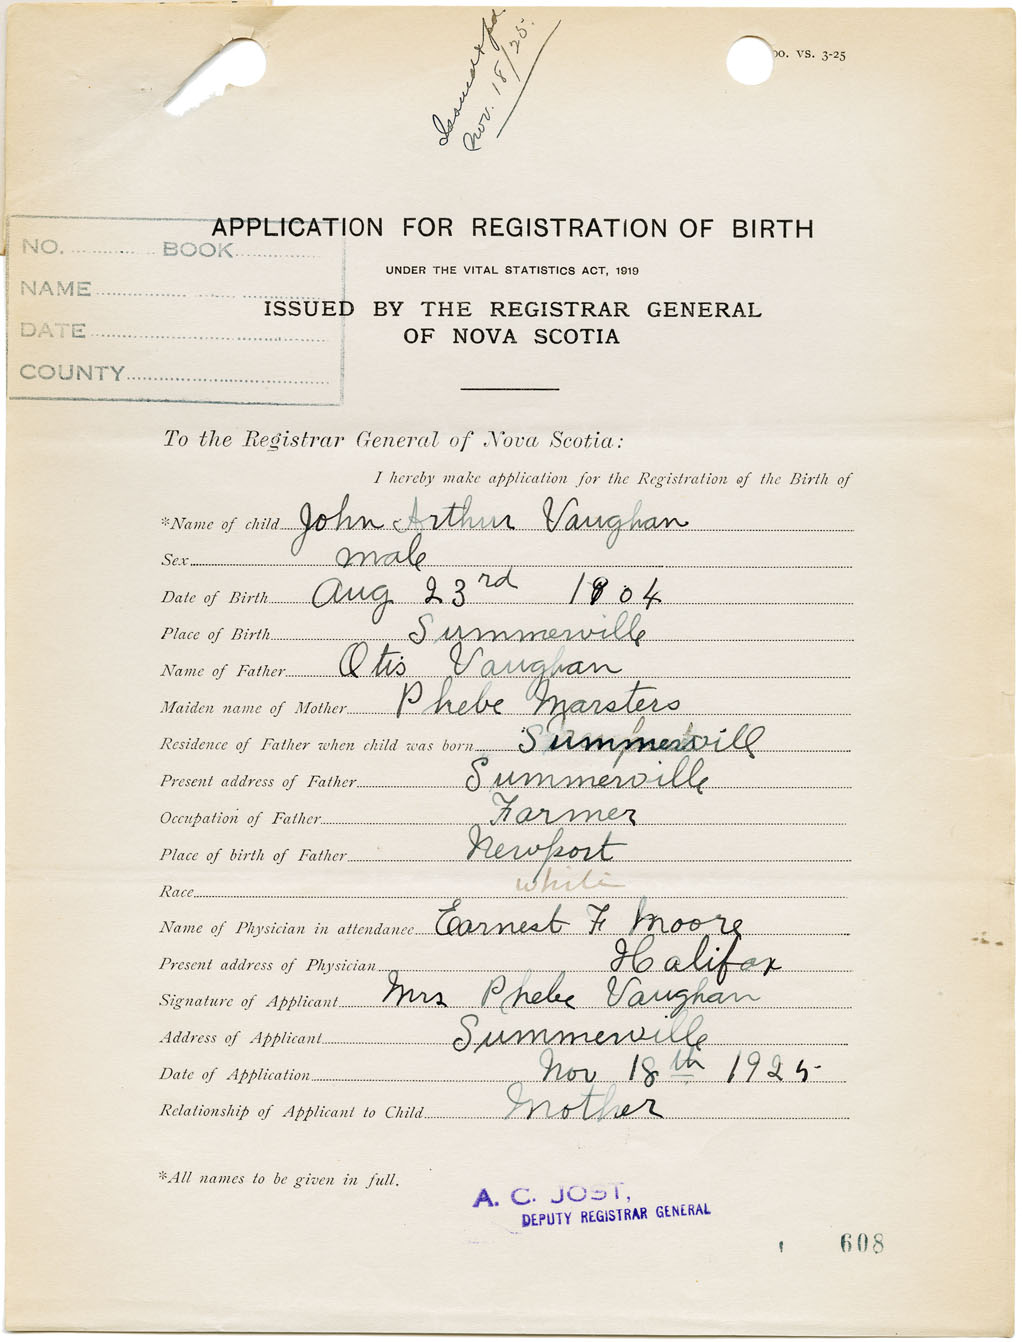 Issued & pd
Nov. 18/25.
00. VS. 3-25
APPLICATION FOR REGISTRATION OF BIRTH
UNDER THE VITAL STATISTICS ACT, 1919
ISSUED BY THE REGISTRAR GENERAL
OF NOVA SCOTIA
NO. BOOK
NAME
DATE
COUNTY
To the Registrar General of Nova Scotia:
I hereby make application for the Registration of the Birth of
*Name of child John Arthur Vaughan
Sex male
Date of Birth Aug 23rd 1904
Place of Birth Summerville
Name of Father Otis Vaughan
Maiden name of Mother Phebe Marsters
Residence of Father when child was born Summerville
Present address of Father Summerville
Occupation of Father Farmer
Place of birth of Father Newport
Race white
Name of Physician in attendance Earnest F Moore
Present address of Physician Halifax
Signature of Applicant Mrs Phebe Vaughan
Address of Applicant Summerville
Date of Application Nov 18th 1925
Relationship of Applicant to Child Mother
*All names to be given in full.
A. C. JOST,
DEPUTY REGISTRAR GENERAL
608